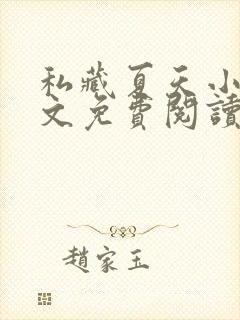 私藏夏天小
文免費閱讀
趙家玉